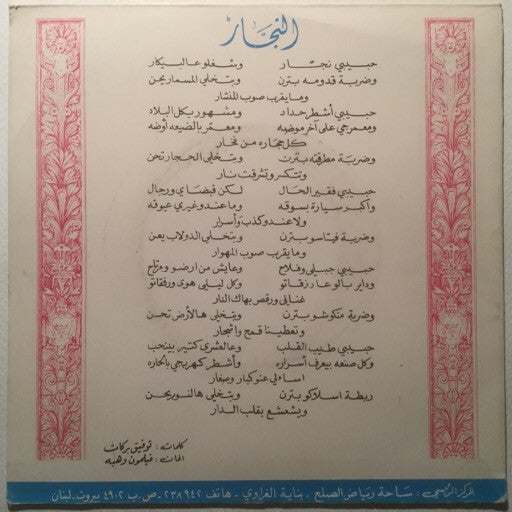 النجار
حبيبي نجّار وبشغلو عالبيكار
وضربة قدومه بترن وبتخلي المسمار يحن
وما يقرب صوب المنشار
حبيبي أشطر حداد ومشهور بكل البلاد
ومعمرجي على آخر موضه ومعمّر بالضيعه أوضه
كل حجاره من فخار
وضربة مطرقته بترن وبتخلي الحجار تحن
وتتكسر وتشرقت نار
حبيبي فقير الحال لكن قبضاي ورجال
وأكبر سيارة بسوقه وما عندو غيري عيوقه
ولا عندو كذب وأسرار
وضربة فيتاسو بترن وبتخلي الدولاب يعن
وما يقرب صوب المهوار
حبيبي جبيلي وفلاح وعايش من ارضو ومرتاح
وداير بالوعار زقاتو وكل ليلى هوي ورفقاتو
غناني ورقص بهاك الدار
وضربة منكوشو بترن وبتخلي هالأرض تحن
وتعطينا قمح واشجار
حبيبي طيب القلب وعالعشرى كتير بينحب
وكل صنعه بيعرف أسراره وأشطر كهربجي بالحاره
اسا لي عنو كبار وصغار
ربطة اسلاكو بترن وبتخلي هالنور يحن
ويشعشع بقلب الدار
كلمات : توفيق بركات
الحان : فيلمون وهبه
المركز الرئيسي : ساحة رياض الصلح - بناية الغراوي - هاتف ٢٣٨٩٤٢ - ص.ب ٤٩٠٢ بيروت - لبنان